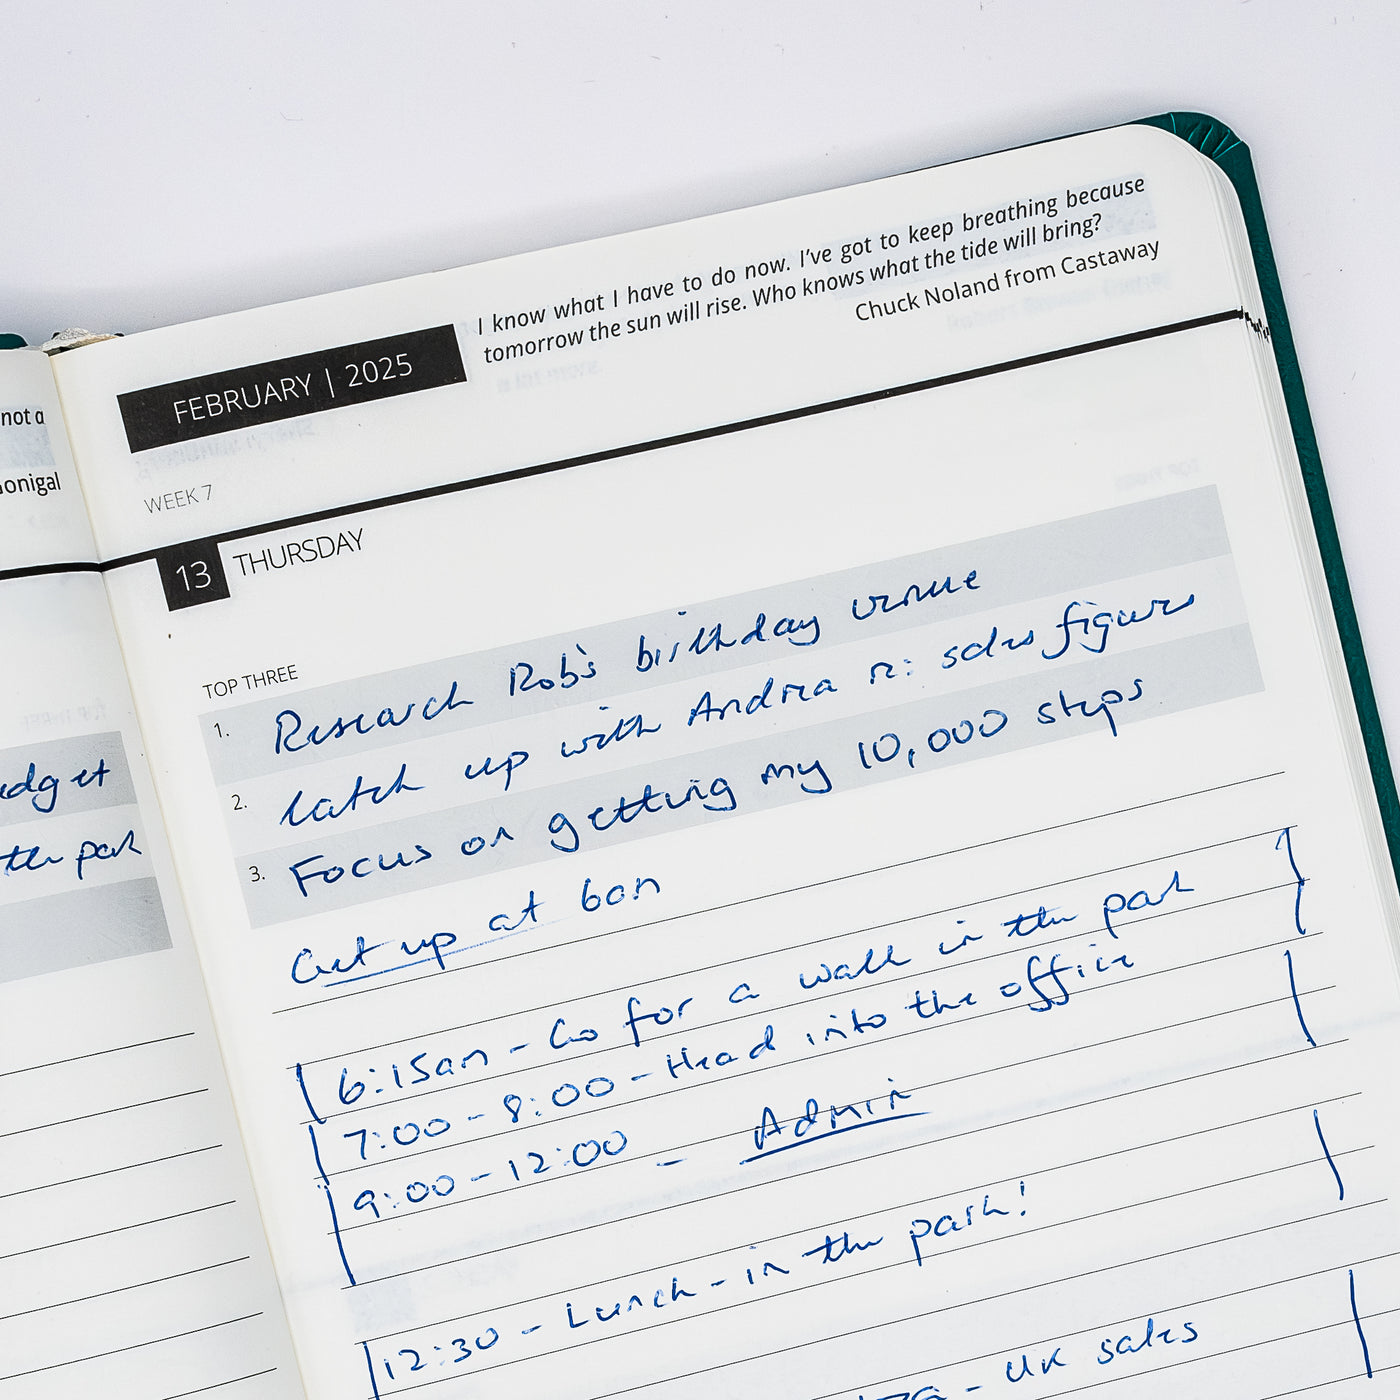 not a
onigal
dget
the park
FEBRUARY | 2025
I know what I have to do now. I've got to keep breathing because
tomorrow the sun will rise. Who knows what the tide will bring?
Chuck Noland from Castaway
WEEK 7
13 THURSDAY
TOP THREE
1. Research Rob's birthday venue
2. Catch up with Andrea re: sales figures
3. Focus on getting my 10,000 steps
Get up at 6am
6:15am - Go for a walk in the park
7:00 - 8:00 - Head into the office
9:00 - 12:00 - Admin
12:30 - Lunch - in the park!
- UK sales